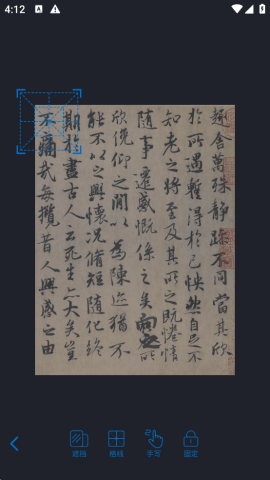 4:12
趣舍萬殊靜躁不同當其欣
於所遇暫得於己怏然自足不
知老之將至及其所之既惓情
隨事遷感慨係之矣向之所
欣俛仰之間以為陳迹猶不
能不以之興懷況脩短隨化終
期於盡古人云死生亦大矣豈
不痛哉每攬昔人興感之由
遮挡
格线
手写
固定